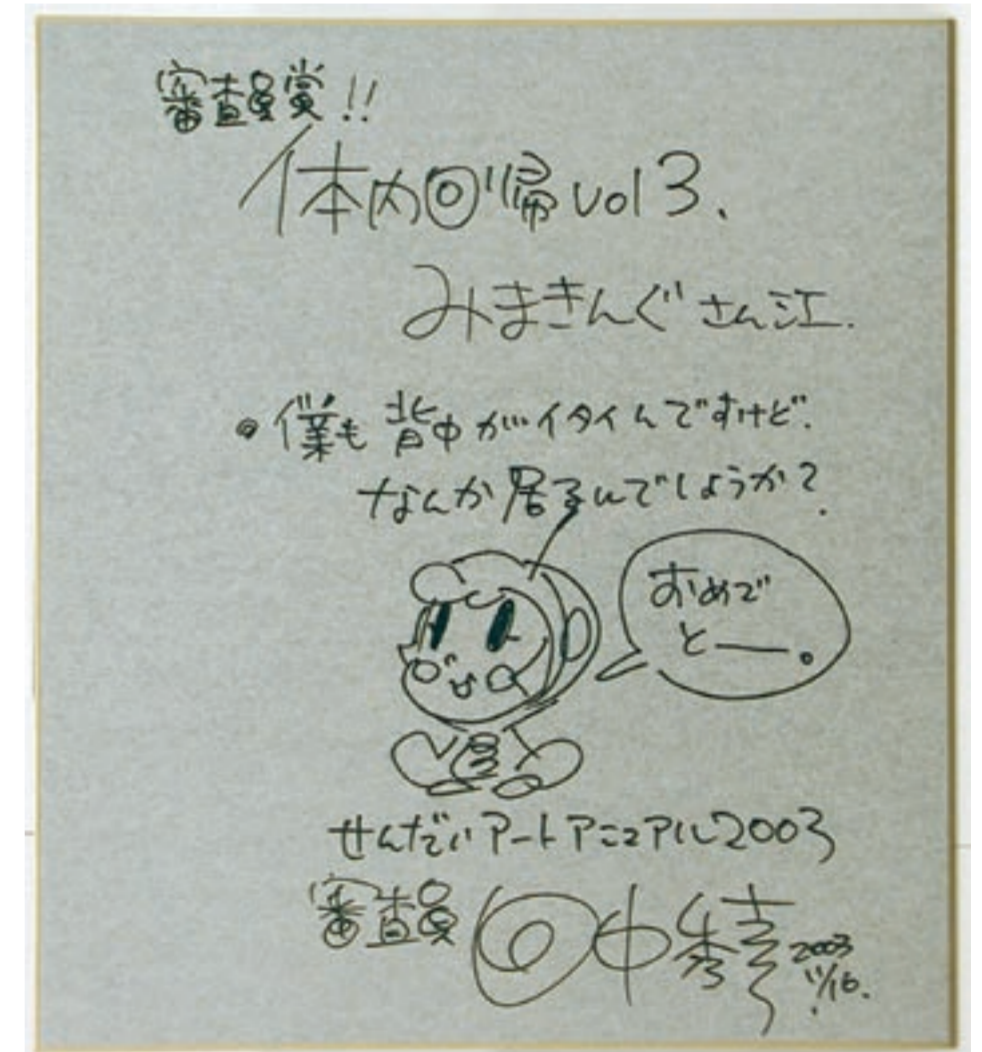 審査員賞!!
体内回帰vol3.
みまきんぐさん江.
•僕も背中がイタイんですけど.
なんか居るんでしょうか?
おめで
とー。
せんだいアートアニュアル2003
審査員 田中秀幸 2003
11/16.